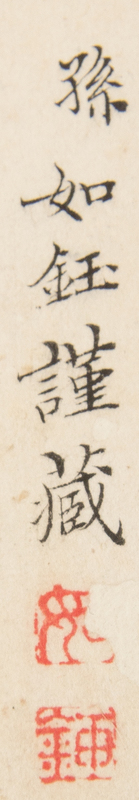 孫如鈺謹藏
如